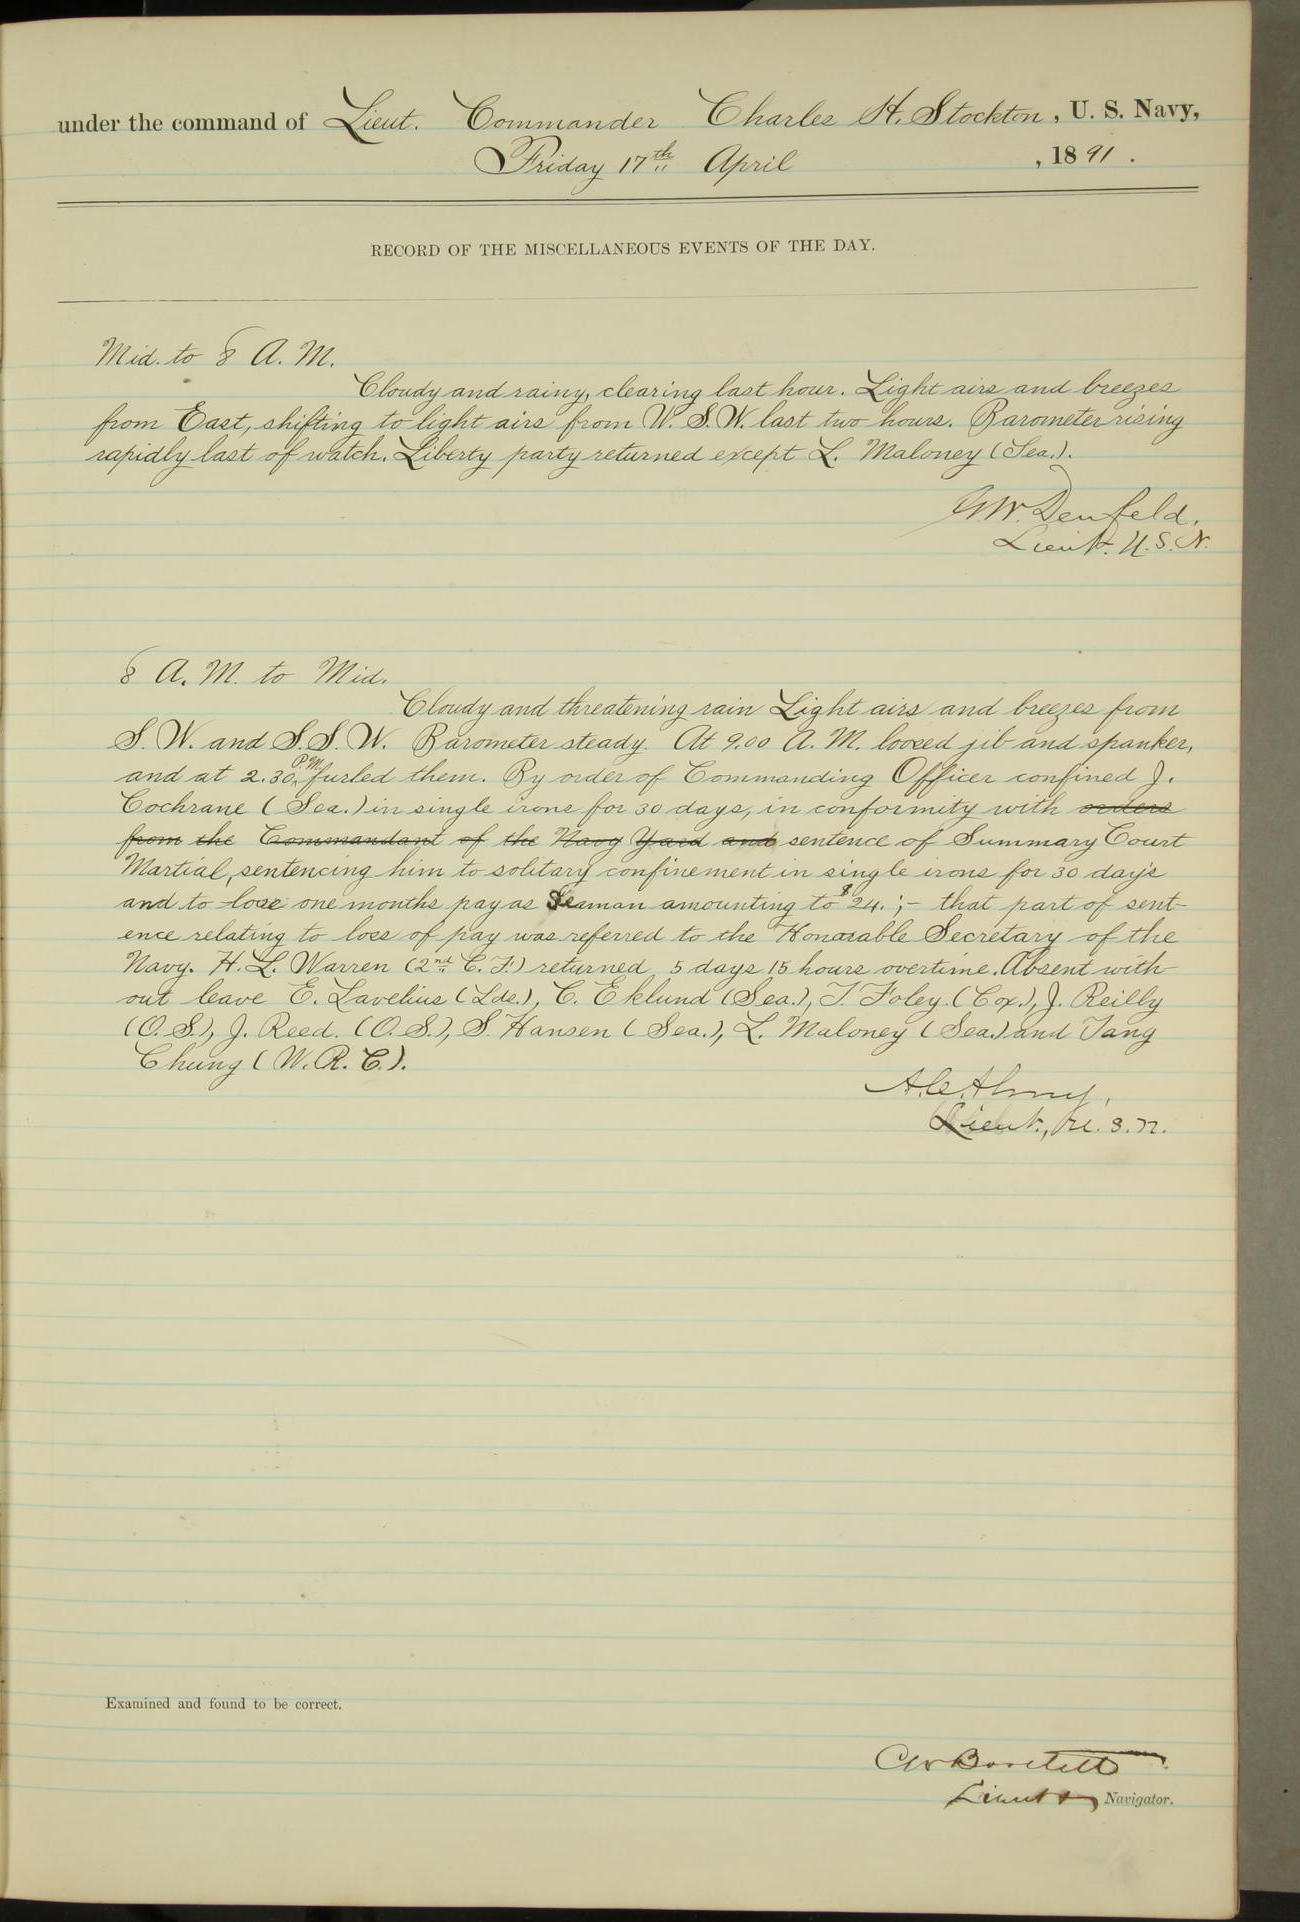 under the command of Lieut. Commander Charles H. Stockton, U. S. Navy,
Friday 17th April , 1891.
RECORD OF THE MISCELLANEOUS EVENTS OF THE DAY.
Mid. to 8 A. M.
Cloudy and rainy, clearing last hour. Light airs and breezes
from East, shifting to light airs from W. S. W. last two hours. Barometer rising
rapidly last of watch. Liberty party returned except L. Maloney (Sea.).
G. W. Denfeld,
Lieut. U. S. N.
8 A. M. to Mid.
Cloudy and threatening rain Light airs and breezes from
S. W. and S. S. W. Barometer steady. At 9.00 A. M. loosed jib and spanker,
and at 2.30 P.M. furled them. By order of Commanding Officer confined J.
Cochrane (Sea.) in single irons for 30 days, in conformity with orders
from the Commandant of the Navy Yard and sentence of Summary Court
Martial, sentencing him to solitary confinement in single irons for 30 days
and to lose one months pay as Seaman amounting to $24. ;- that part of sent-
ence relating to loss of pay was referred to the Honorable Secretary of the
Navy. H. L. Warren (2nd C. F.) returned 5 days 15 hours overtime. Absent with-
out leave E. Lavelius (Lds.), C. Eklund (Sea.), T. Foley (Cox.), J. Reilly
(O. S.), J. Reed. (O. S.), S. Hansen (Sea.), L. Maloney (Sea.) and Tang
Chung (W. R. C.).
A. C. Almy,
Lieut., U. S. N.
Examined and found to be correct.
Lieut Navigator.